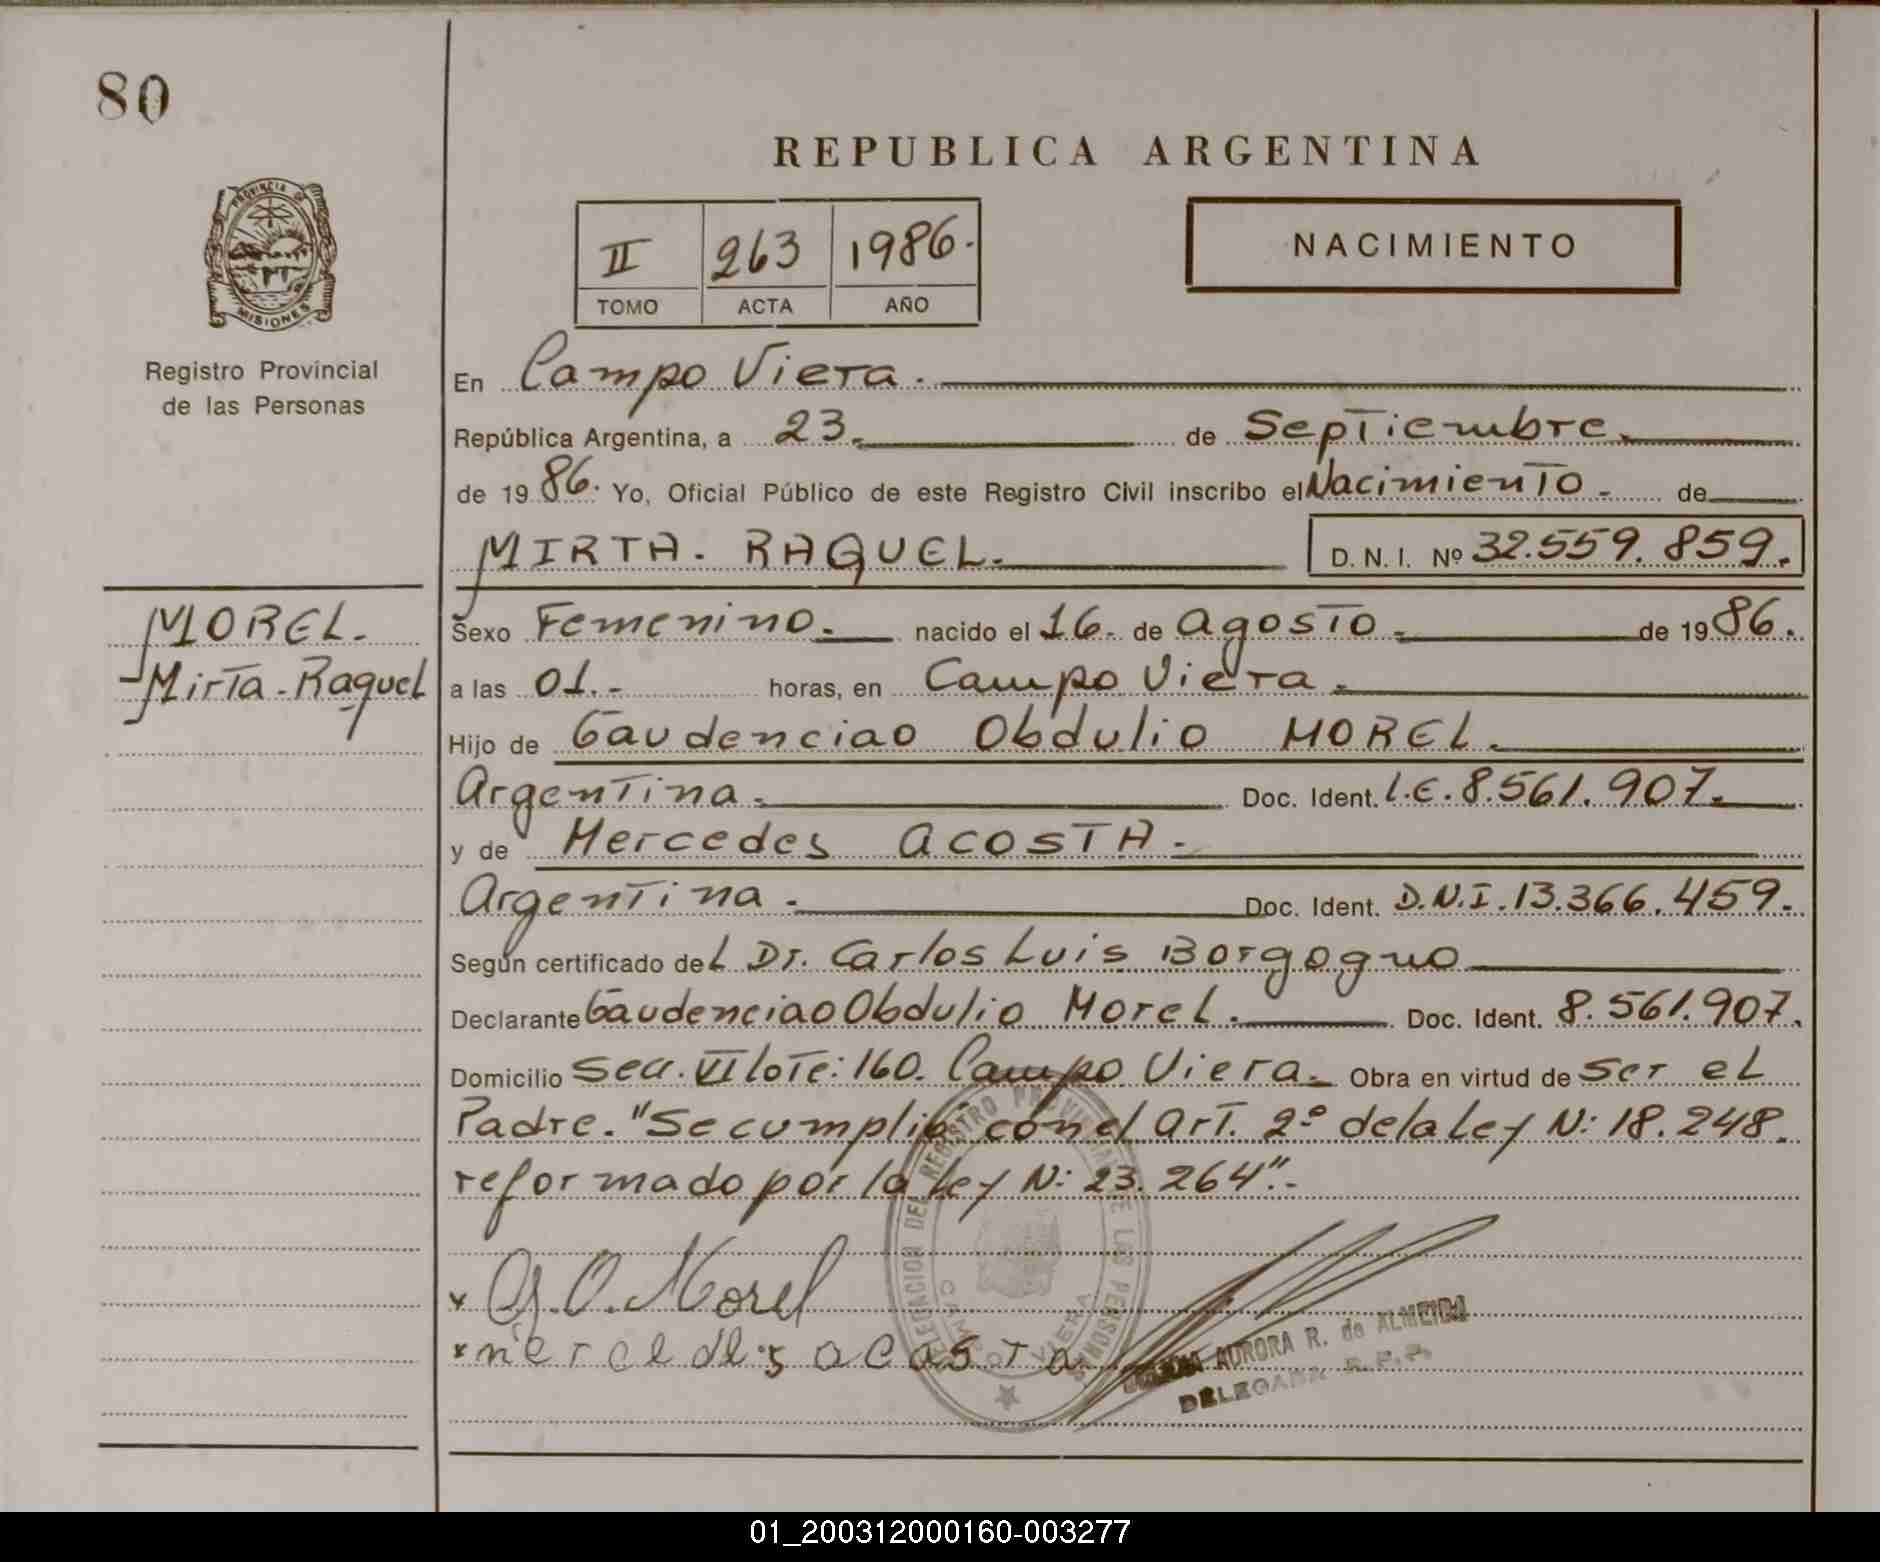 80
REPUBLICA ARGENTINA
II 263 1986.
TOMO ACTA AÑO
NACIMIENTO
PROVINCIA DE
MISIONES
Registro Provincial
de las Personas
En Campo Viera.
República Argentina, a 23. de Septiembre.
de 1986. Yo, Oficial Público de este Registro Civil inscribo el Nacimiento - de
MIRTA. RAQUEL. D. N. I. Nº 32.559.859.
MOREL.
Mirta-Raquel
Sexo Femenino. nacido el 16. de Agosto. de 1986.
a las 01.- horas, en Campo Viera.
Hijo de Gaudenciao Obdulio MOREL.
Argentina. Doc. Ident. L.E. 8.561.907.
y de Mercedes ACOSTA.
Argentina. Doc. Ident. D.N.I. 13.366.459.
Según certificado del Dr. Carlos Luis Borgogno
Declarante Gaudenciao Obdulio Morel. Doc. Ident. 8.561.907.
Domicilio Secc. VI lote: 160. Campo Viera. Obra en virtud de ser el
Padre. "Se cumplió con el Art. 2º de la Ley N: 18.248.
reformado por la Ley N: 23.264".-
G. O. Morel
mercedes acosta
DELEGACION DEL REGISTRO PROVINCIAL DE LAS PERSONAS
CAMPO VIERA
AURORA R. de ALMEIDA
DELEGADA R.P.P.
01_200312000160-003277